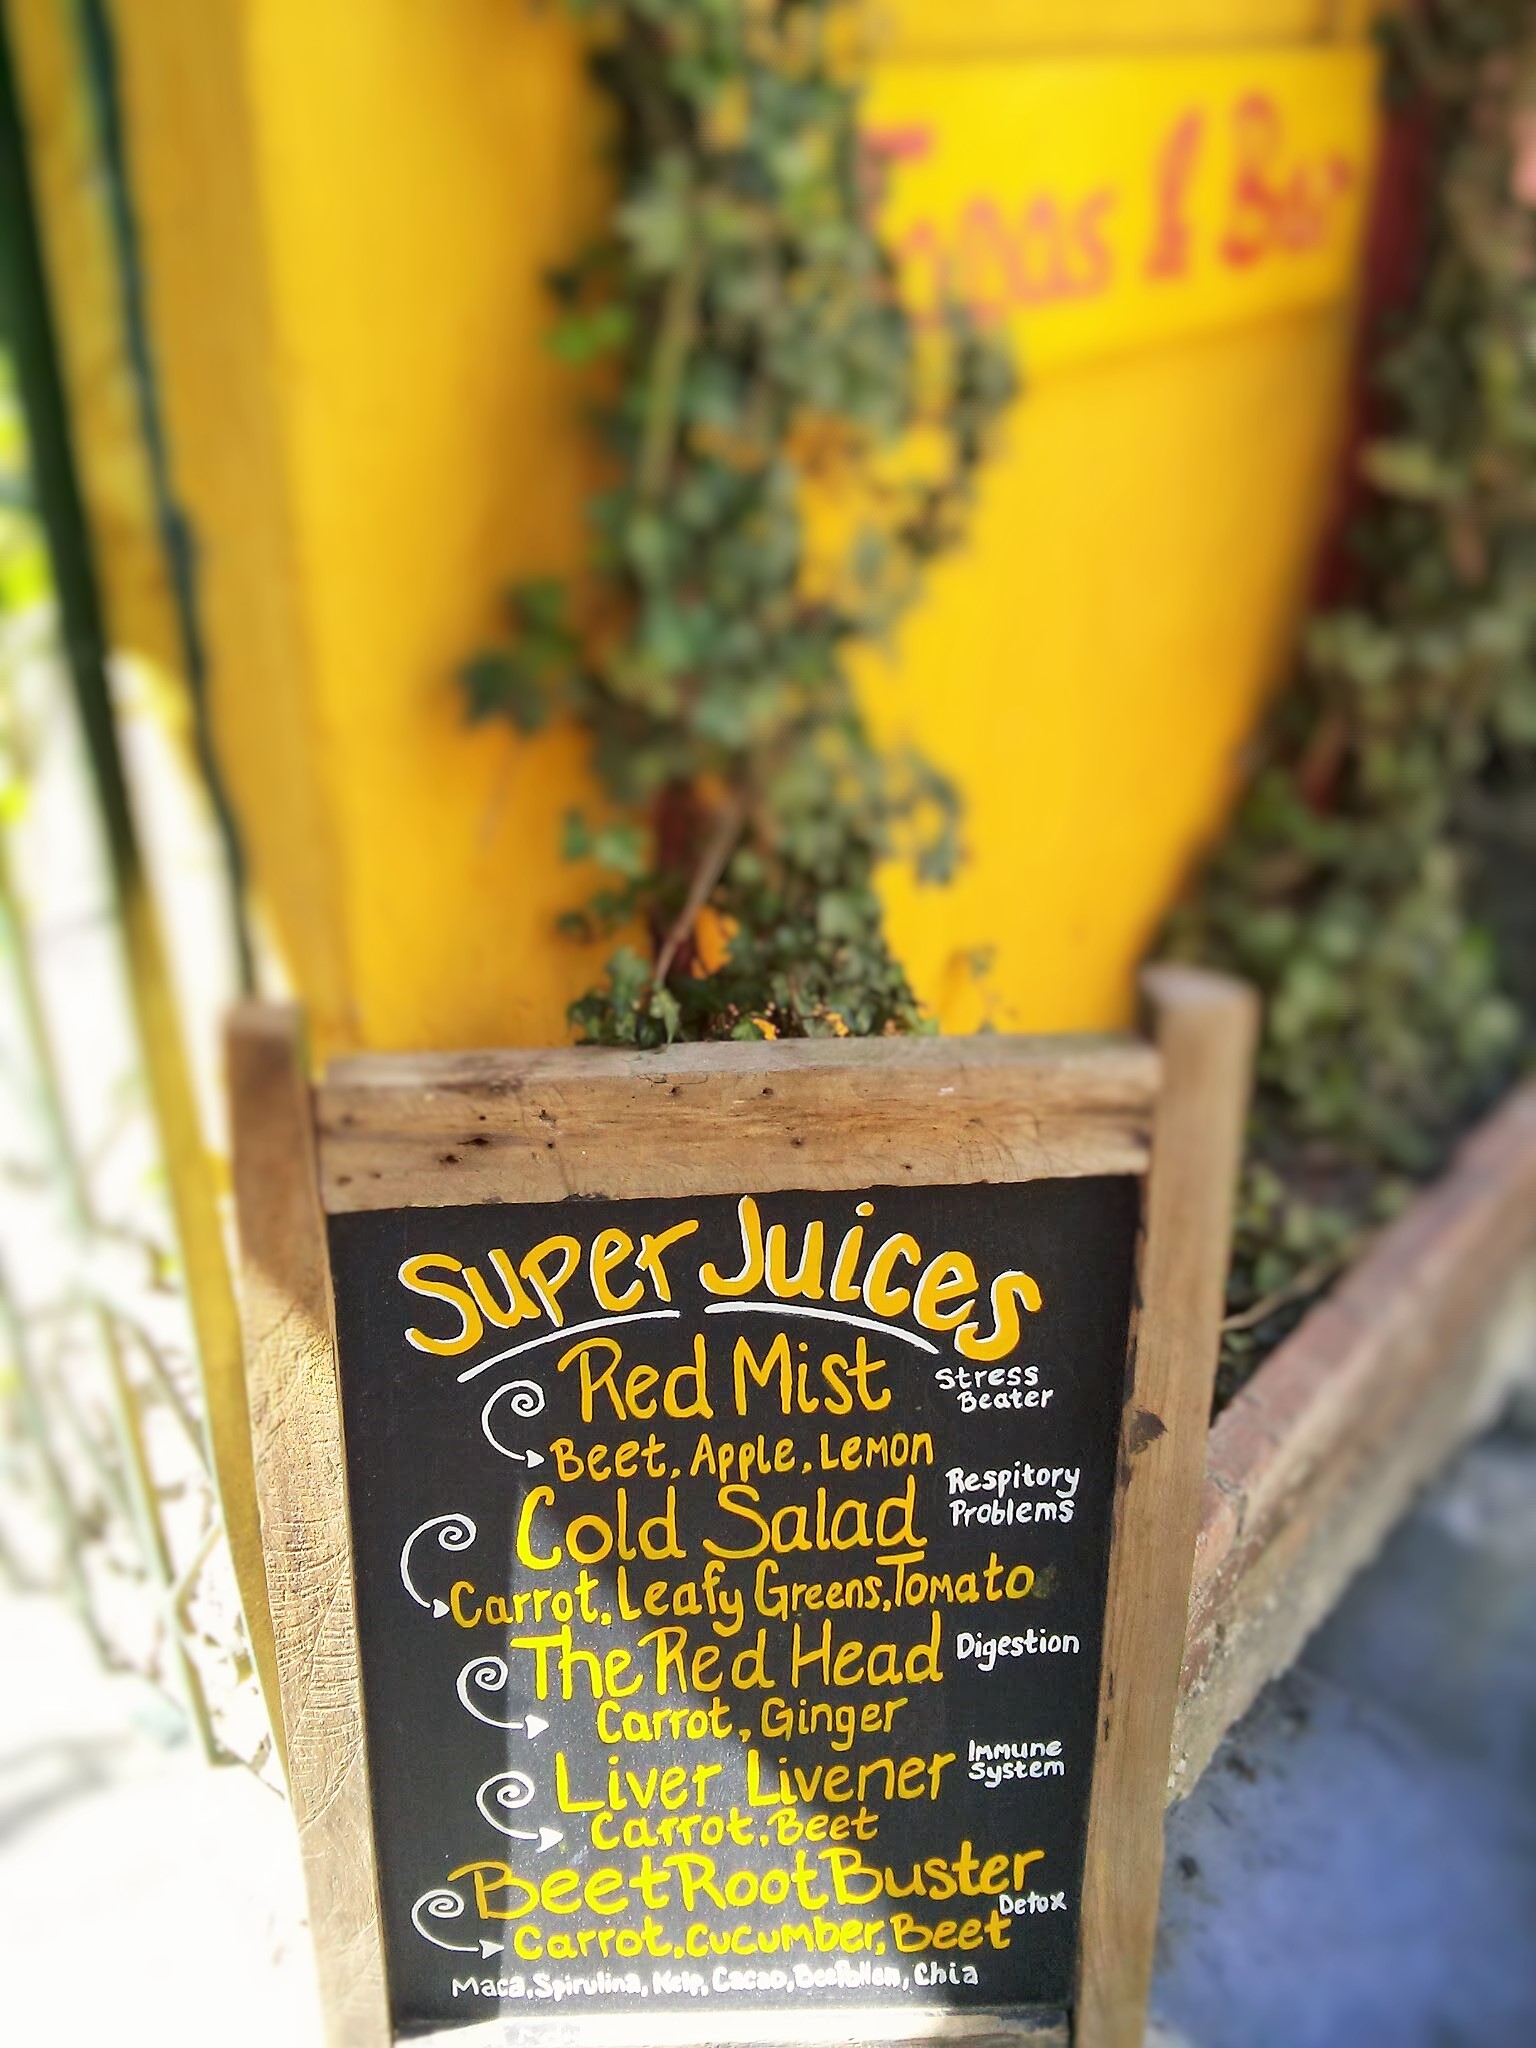 Tapas & Bar
Super Juices
Red Mist
Stress
Beater
Beet, Apple, Lemon
Cold Salad
Respitory
Problems
Carrot, Leafy Greens, Tomato
The Red Head
Digestion
Carrot, Ginger
Liver Livener
Immune
System
Carrot, Beet
BeetRootBuster
Detox
Carrot, Cucumber, Beet
Maca, Spirulina, Kelp, Cacao, BeePollen, Chia